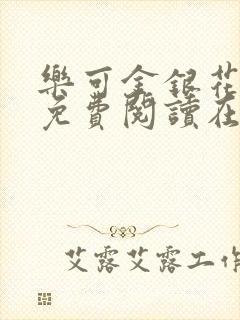 樂可金銀花
免費閱讀在
艾露艾露工作